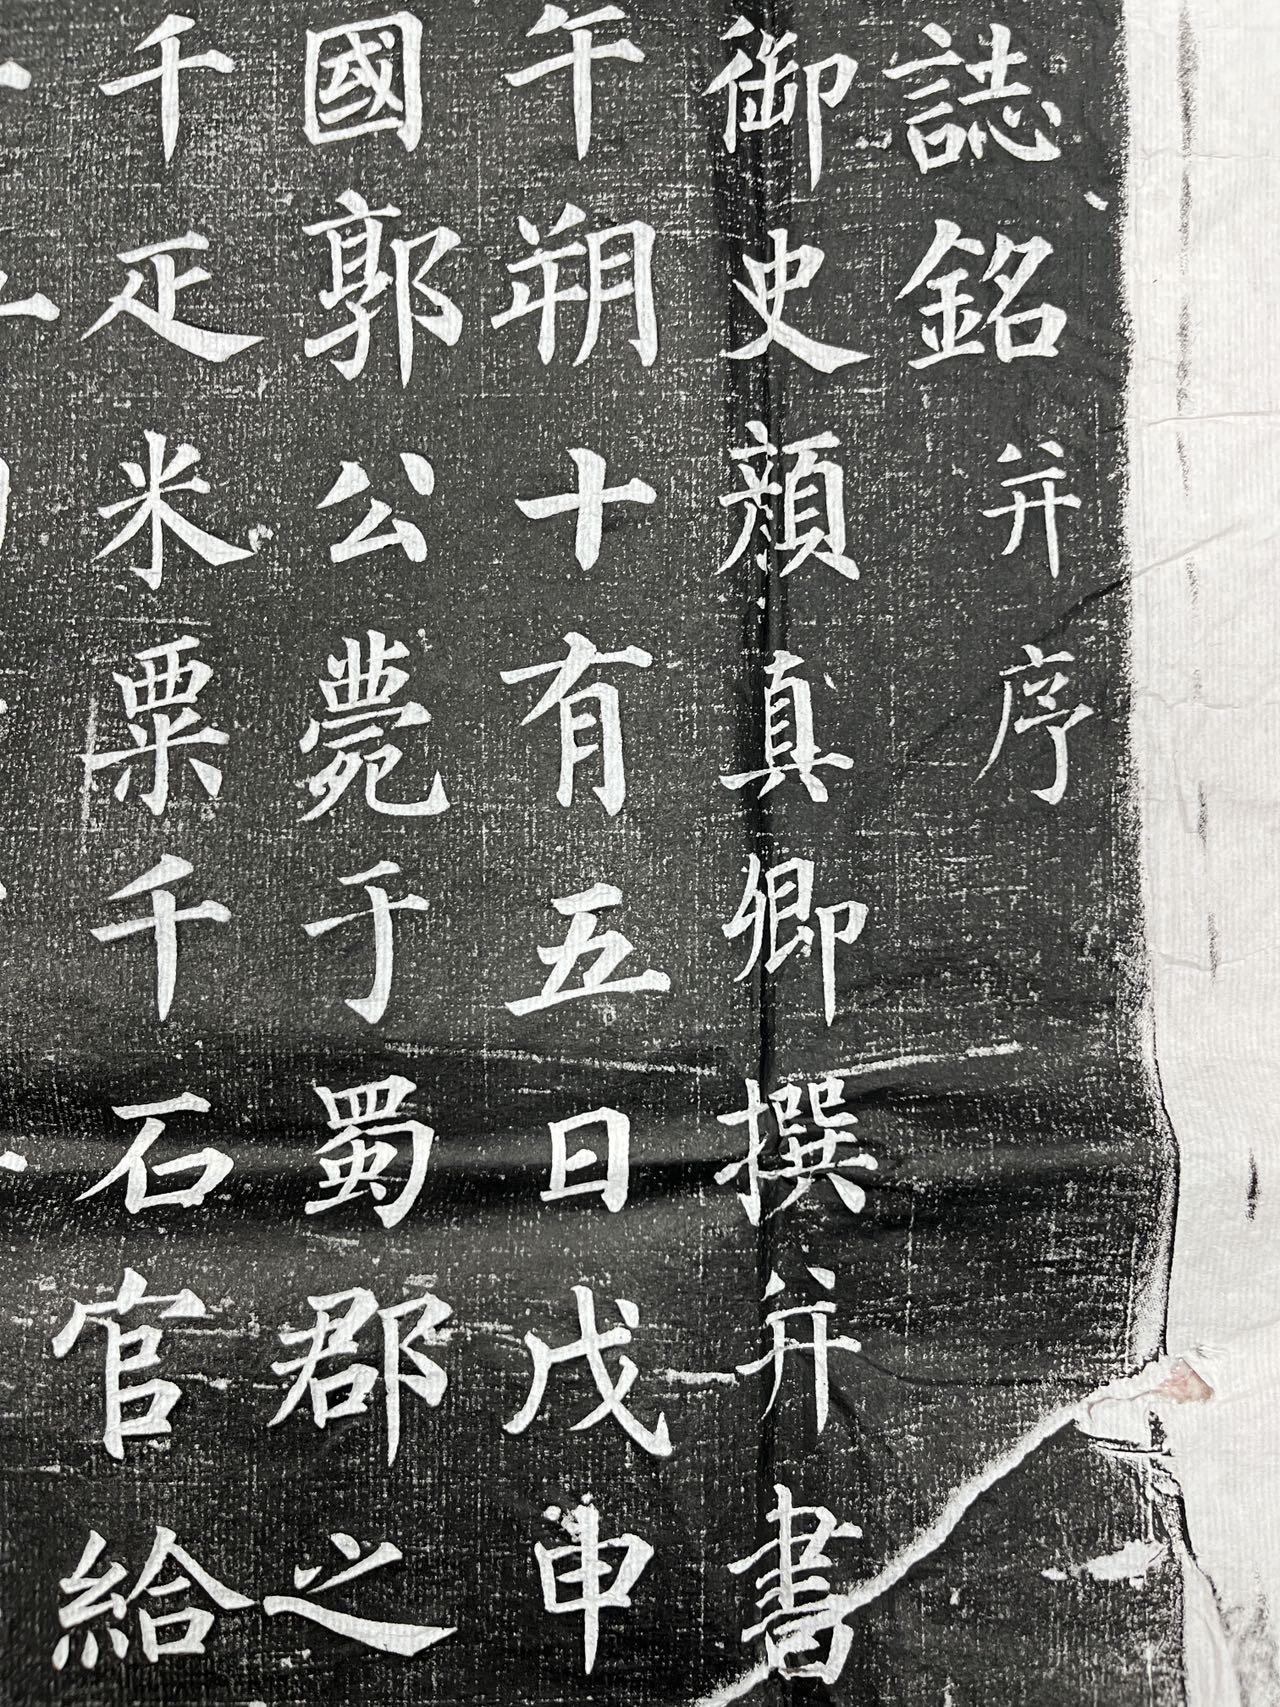 誌銘并序
御史顏真卿撰并書
午朔十有五日戊申
國郭公薨于蜀郡之
千疋米粟千石官給